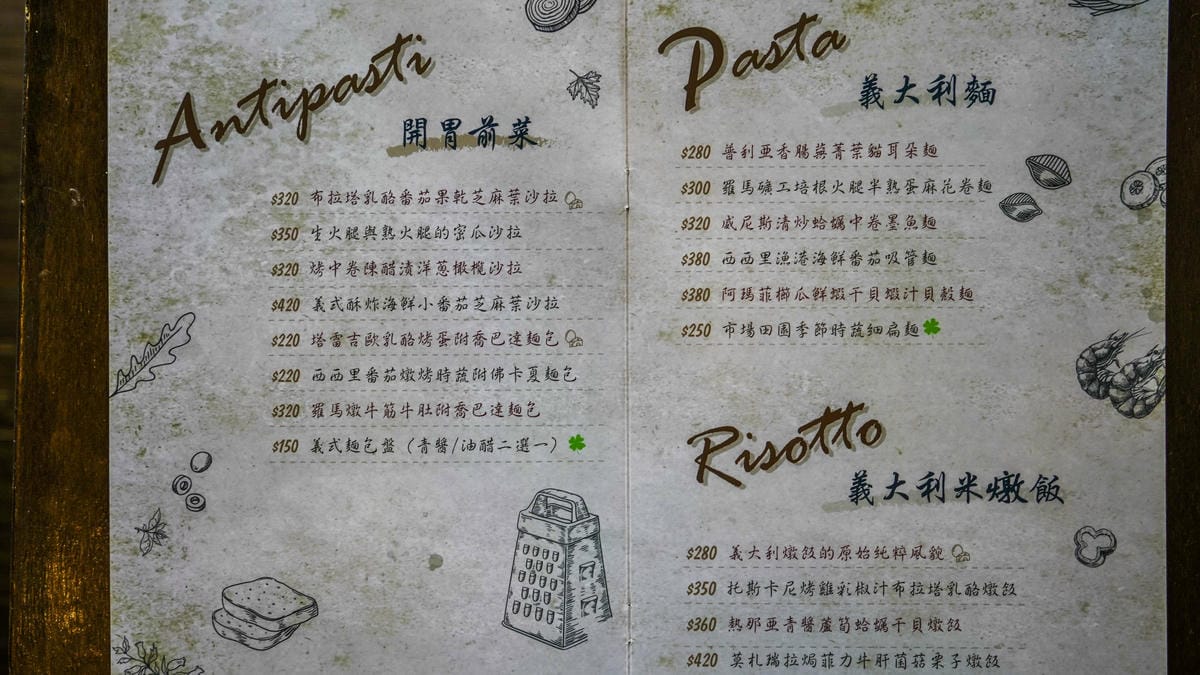 Antipasti
開胃前菜
$320 布拉塔乳酪番茄果乾芝麻葉沙拉
$350 生火腿與熟火腿的密瓜沙拉
$320 烤中卷陳醋漬洋蔥橄欖沙拉
$420 義式酥炸海鮮小番茄芝麻葉沙拉
$220 塔雷吉歐乳酪烤蛋附喬巴達麵包
$220 西西里番茄燉烤時蔬附佛卡夏麵包
$320 羅馬燉牛筋牛肚附喬巴達麵包
$150 義式麵包盤（青醬/油醋二選一）
Pasta
義大利麵
$280 普利亞香腸蕪菁葉貓耳朵麵
$300 羅馬礦工培根火腿半熟蛋麻花卷麵
$320 威尼斯清炒蛤蠣中卷墨魚麵
$380 西西里漁港海鮮番茄吸管麵
$380 阿瑪菲櫛瓜鮮蝦干貝蝦汁貝殼麵
$250 市場田園季節時蔬細扁麵
Risotto
義大利米燉飯
$280 義大利燉飯的原始純粹風貌
$350 托斯卡尼烤雞彩椒汁布拉塔乳酪燉飯
$360 熱那亞青醬蘆筍蛤蠣干貝燉飯
$420 莫札瑞拉焗菲力牛肝菌菇栗子燉飯